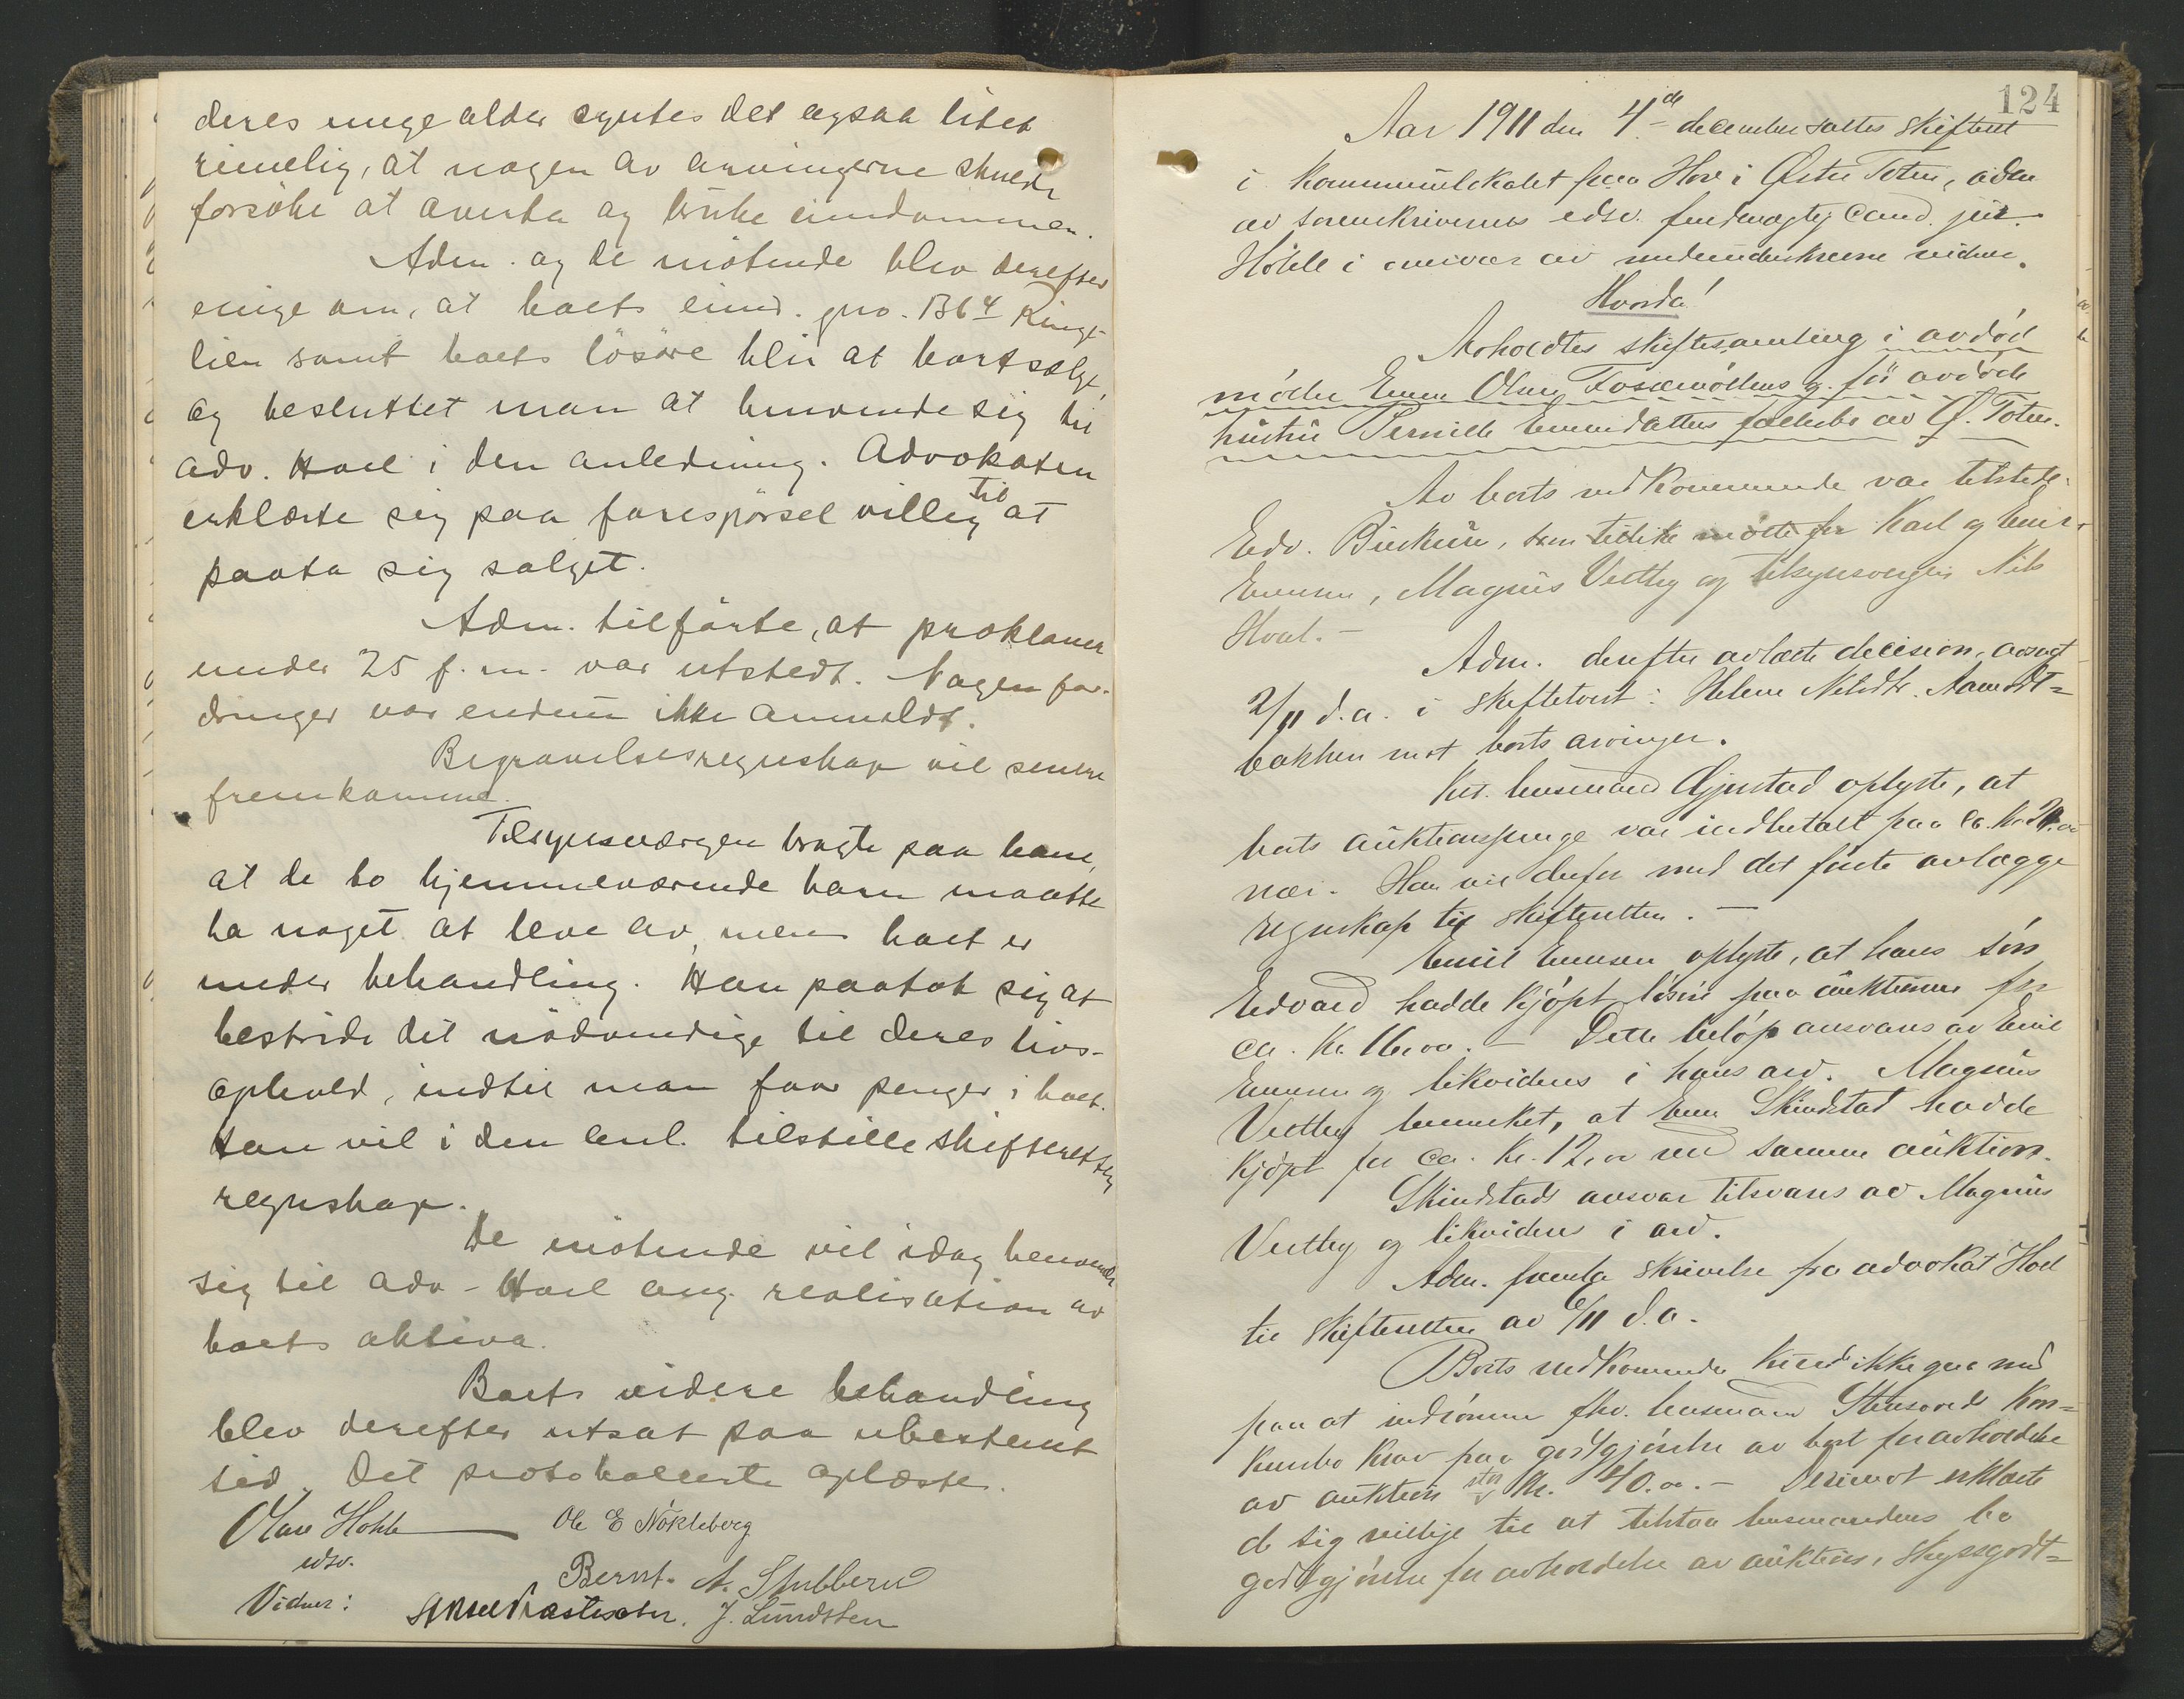 deres unge alder syntes det ogsaa litet
rimelig, at nogen av arvingerne skulde
forsöke at overta og bruke eiendommen.
Adm. og de mötende blev derefter
enige om, at boets eiend. gno. 136 4 Ringe-
lien samt boets lösöre blir at bortsælge,
og besluttet man at henvende sig til
adv. Hoel i den anledning. Advokaten
erklærte sig paa forespörsel villig til at
paata sig salget.
Adm. tilförte, at proklama
under 25 f. m. var utstedt. Nogen for-
dringer var endnu ikke anmeldt.
Begravelsesregnskap vil senere
fremkomme.
Tilsynsværgen bragte paa bane,
at de to hjemmeværende barn maatte
ha noget at leve av, mens boet er
under behandling. Han paatok sig at
bestride det nödvendige til deres livs-
ophold, indtil man faar penger i boet.
Han vil i den anl. tilstille skifteretten
regnskap.
De mötende vil idag henvende
sig til adv. Hoel ang. realisation av
boets aktiva.
Boets videre behandling
blev derefter utsat paa ubestemt
tid. Det protokollerte oplæste.
Olav Hohle Ole E Nökleberg
edsv.
Bernt. A. Stubberud
Vidner: J. Lundsten
124
Aar 1911 den 4de december sattes skifteret
i kommunelokalet paa Hov i Østre Toten,
av sorenskriverens edsv. fuldmægtig cand. jur.
Hohle i overvær av undertegnede vidner.
Hvorda!
Avholdtes skiftesamling i avdöd
möller Even Olsen Fossemöllens og för avdöde
hustru Pernille Evensdatters fællesbo av Ø. Toten.
Av boets vedkommende var tilstede:
Edv. Birkum, som tillike mötte for Karl og Emil
Evensen, Magnus Vestby og tilsynsvergen Nils
Hoel. -
Adm. derefter avlæste decision, avsagt
2/11 d. a. i skiftetvist: Helene Nilsdtr. Aamodt-
bakken mot boets arvinger.
Kst. lensmand Gjestad oplyste, at
boets auktionspenge var indbetalt paa ca. kr. 20.00
nær. Han vil derfor med det förste avlægge
regnskap til skifteretten. -
Emil Evensen oplyste, at hans sön
Edvard hadde kjöpt lösöre paa auktionen for
ca. kr. 16.00. - Dette belöp ansvares av Emil
Evensen og likvideres i hans arv. Magnus
Vestby bemerket, at Even Skindstad hadde
kjöpt for ca. kr. 12,00 ved samme auktion.
Skindstads ansvar tilsvares av Magnus
Vestby og likvideres i arv.
Adm. fremla skrivelse fra advokat Hoel
til skifteretten av 6/11 d. a.
Boets vedkommende kunde ikke gaa med
paa at indrömme fhv. lensmand Stensruds kon-
kursbo krav paa godtgjörelse av boet for avholdelse
av auktion stor kr. 40.00. - Derimot erklærte
de sig villige til at tilstaa lensmandens bo
godtgjörelse for avholdelse av auktion, skyssgodt-